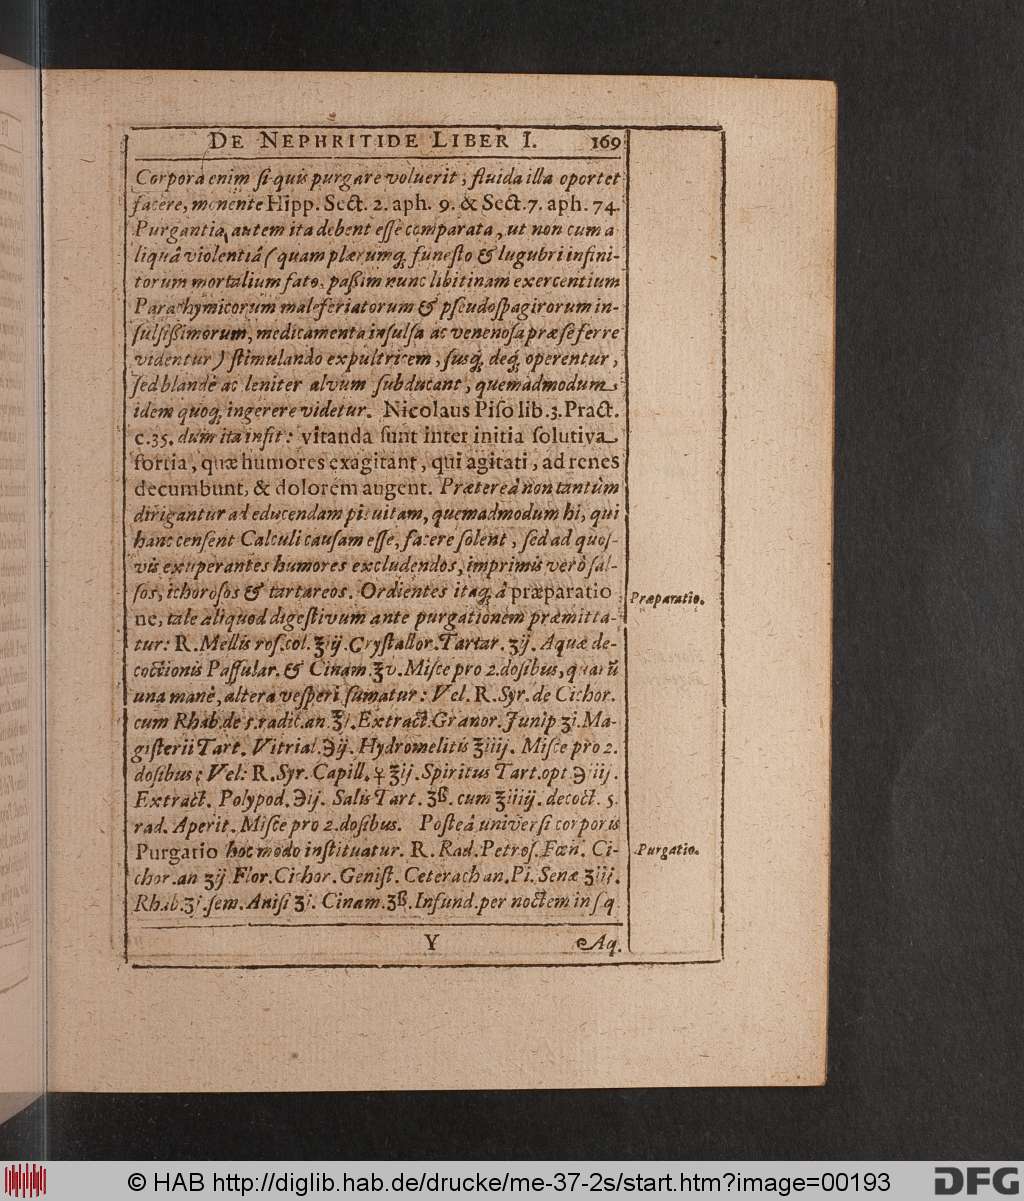 DE NEPHRITIDE LIBER I. 169
Corpora enim ſi quis purgare voluerit, fluida illa oportet
facere, monente Hipp. Sect. 2. aph. 9. & Sect. 7. aph. 74.
Purgantia, autem ita debent eſſe comparata, ut non cum a
liquâ violentiâ (quam plærumq; funeſto & lugubri infini-
torum mortalium fato, paſſim nunc libitinam exercentium
Parachymicorum maleferiatorum & pſeudoſpagirorum in-
ſulſiſſimorum, medicamenta inſulſa ac venenoſa præ ſe ferre
videntur) ſtimulando expultricem, ſusq; deq; operentur,
ſed blandè ac leniter alvum ſubducant, quemadmodum
idem quoq; ingerere videtur. Nicolaus Piſo lib. 3. Pract.
c. 35. dum ita inſit: vitanda ſunt inter initia ſolutiva
fortia, quæ humores exagitant, qui agitati, ad renes
decumbunt, & dolorem augent. Prætereà non tantùm
dirigantur ad educendam pituitam, quemadmodum hi, qui
hanc cenſent Calculi cauſam eſſe, facere ſolent, ſed ad quoſ-
vis exuperantes humores excludendos, imprimis verò ſal-
ſos, ichoroſos & tartareos. Ordientes itaq; â præparatio
ne, tale aliquod digeſtivum ante purgationem præmitta-
tur: R. Mellis roſ. col. ℥iij. Cryſtallor. Tartar. ʒij. Aquæ de-
coctionis Paſſular. & Cinam. ℥v. Miſce pro 2. doſibus, quarũ
una manè, altera veſperi ſumatur: Vel. R. Syr. de Cichor.
cum Rhab. de 5. radic. an ℥j. Extract. Granor. Junip ʒi. Ma-
giſterii Tart. Vitriat. ℈ij. Hydromelitis ℥iiij. Miſce pro 2.
doſibus: Vel: R. Syr. Capill. ♀ ℥ij. Spiritus Tart. opt ℈iij.
Extract. Polypod. ℈ij. Salis Tart. ʒß. cum ℥iiij. decoct. 5.
rad. Aperit. Miſce pro 2. doſibus. Poſteà univerſi corporis
Purgatio hoc modo inſtituatur. R. Rad. Petroſ. Fœn. Ci-
chor. an ʒij Flor. Cichor. Geniſt. Ceterach an. Pi. Senæ ʒiij.
Rhab. ʒj. ſem. Aniſi ʒi. Cinam. ʒß. Infund. per noctem in ſ q
Y Aq.
Præparatio.
Purgatio.
© HAB http://diglib.hab.de/drucke/me-37-2s/start.htm?image=00193
DFG